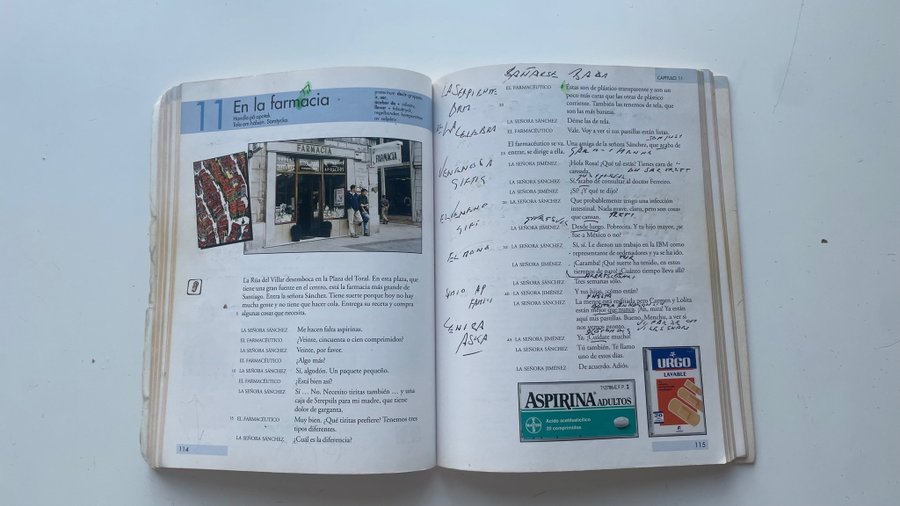 11 En la farmacia
Handla på apotek.
Tala om hälsan. Släktycka.
preteritum: decir grupper
+ ser
acabar de + infinitiv
llevar + tidsuttryck
regelbunden komparation
av adjektiv
FARMACIA
FARMACIA
La Rúa del Villar desemboca en la Plaza del Toral. En esta plaza, que
tiene una gran fuente en el centro, está la farmacia más grande de
Santiago. Entra la señora Sánchez. Tiene suerte porque hoy no hay
mucha gente y no tiene que hacer cola. Entrega su receta y compra
5 algunas cosas que necesita.
LA SEÑORA SÁNCHEZ Me hacen falta aspirinas.
EL FARMACÉUTICO ¿Veinte, cincuenta o cien comprimidos?
LA SEÑORA SÁNCHEZ Veinte, por favor.
EL FARMACÉUTICO ¿Algo más?
10 LA SEÑORA SÁNCHEZ Sí, algodón. Un paquete pequeño.
EL FARMACÉUTICO ¿Está bien así?
LA SEÑORA SÁNCHEZ Sí … No. Necesito tiritas también … y una
caja de Strepsils para mi madre, que tiene
dolor de garganta.
15 EL FARMACÉUTICO Muy bien. ¿Qué tiritas prefiere? Tenemos tres
tipos diferentes.
LA SEÑORA SÁNCHEZ ¿Cuál es la diferencia?
114
CAPÍTULO 11
BAÑARSE BADA
LA SERPIENTE
ORM
LA CULEBRA
VENENOSA
GIFTIG
EL VENENO
GIFT
EL MONO
APA
CENIZA
ASKA
EL FARMACÉUTICO Éstas son de plástico transparente y son un
poco más caras que las otras de plástico
corriente. También las tenemos de tela, que
son las más baratas.
LA SEÑORA SÁNCHEZ Déme las de tela.
EL FARMACÉUTICO Vale. Voy a ver si sus pastillas están listas.
El farmacéutico se va. Una amiga de la señora Sánchez, que acaba de
entrar, se dirige a ella.
LA SEÑORA JIMÉNEZ ¡Hola Rosa! ¿Qué tal estás? Tienes cara de
cansada.
LA SEÑORA SÁNCHEZ Sí, acabo de consultar al doctor Ferreiro.
LA SEÑORA JIMÉNEZ ¿Sí? ¿Y qué te dijo?
LA SEÑORA SÁNCHEZ Que probablemente tengo una infección
intestinal. Nada grave, claro, pero son cosas
que cansan.
LA SEÑORA JIMÉNEZ Desde luego. Pobrecita. Y tu hijo mayor, ¿se
fue a México o no?
LA SEÑORA SÁNCHEZ Sí, sí. Le dieron un trabajo en la IBM como
representante de ordenadores y ya se ha ido.
LA SEÑORA JIMÉNEZ ¡Caramba! ¡Qué suerte ha tenido, en estos
tiempos de paro! ¿Cuánto tiempo lleva allí?
LA SEÑORA SÁNCHEZ Tres semanas sólo.
LA SEÑORA JIMÉNEZ Y tus hijas, ¿cómo están?
LA SEÑORA SÁNCHEZ La menor está resfriada pero Carmen y Lolita
están mejor que nunca. ¡Ah, mira! Ya están
aquí mis pastillas. Bueno, Menchu, a ver si
nos vemos pronto.
LA SEÑORA JIMÉNEZ Ya. ¡Cuídate mucho!
LA SEÑORA SÁNCHEZ Tú también. Te llamo
uno de estos días.
LA SEÑORA JIMÉNEZ De acuerdo. Adiós.
ASPIRINA ADULTOS
BAYER
Ácido acetilsalicílico
20 comprimidos
URGO
LAVABLE
20
115